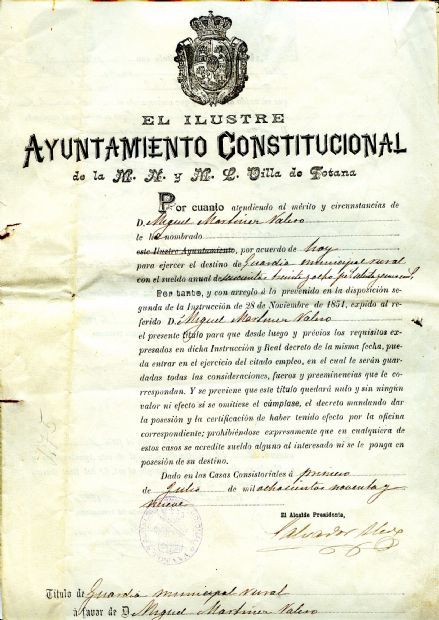 EL ILUSTRE
AYUNTAMIENTO CONSTITUCIONAL
de la M. N. y M. L. Villa de Totana
Por cuanto atendiendo al mérito y circunstancias de
D. Miguel Martinez Valero
le he nombrado
este Ilustre Ayuntamiento, por acuerdo de hoy
para ejercer el destino de Guardia municipal rural
con el sueldo anual de
Por tanto, y con arreglo á lo prevenido en la disposición se-
gunda de la Instrucción de 28 de Noviembre de 1851, expido al re-
ferido D. Miguel Martinez Valero
el presente título para que desde luego y prévios los requisitos ex-
presados en dicha Instrucción y Real decreto de la misma fecha, pue-
da entrar en el ejercicio del citado empleo, en el cual le serán guar-
dadas todas las consideraciones, fueros y preeminencias que le co-
rrespondan. Y se previene que este título quedará nulo y sin ningún
valor ni efecto si se omitiese el cúmplase, el decreto mandando dar
la posesión y la certificación de haber tenido efecto por la oficina
correspondiente; prohibiéndose expresamente que en cualquiera de
estos casos se acredite sueldo alguno al interesado ni se le ponga en
posesión de su destino.
Dado en las Casas Consistoriales á primero
de Julio de mil ochocientos noventa y
nueve
El Alcalde Presidente,
Salvador
Título de Guardia municipal rural
á favor de D. Miguel Martinez Valero